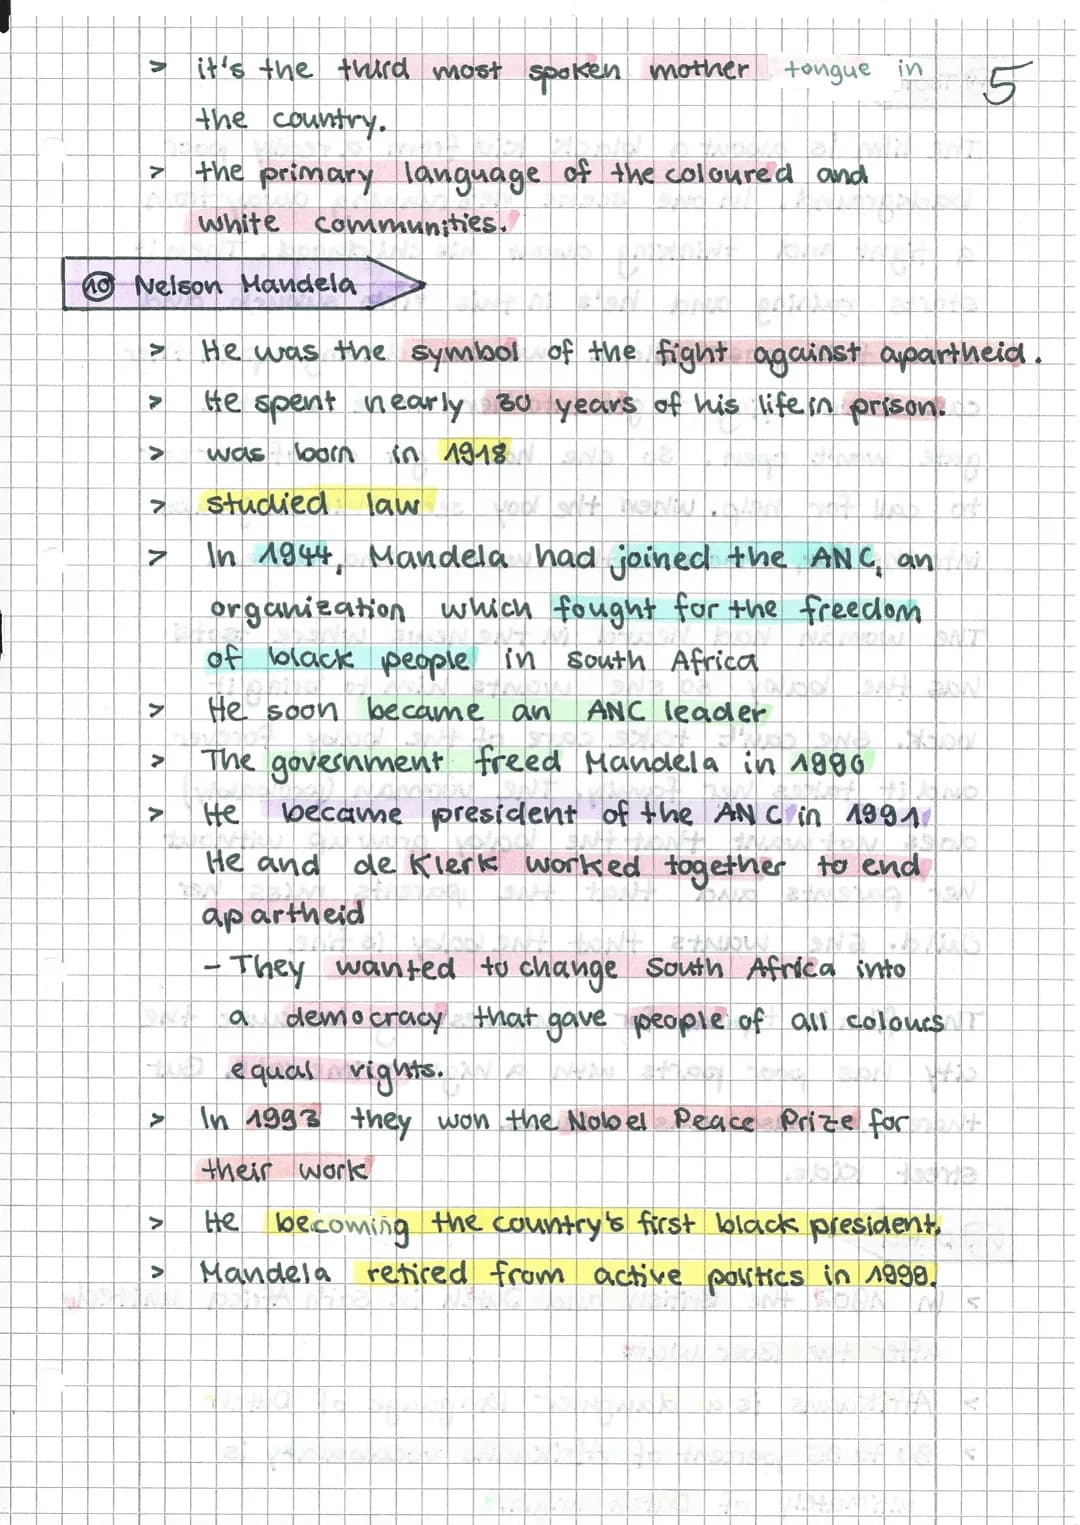 > it's the third most spoken mother tongue in
5
the country.
> the primary language of the coloured and
white communities.
10 Nelson Mandela
> He was the symbol of the fight against apartheid.
> He spent nearly 30 years of his life in prison.
> was born in 1918
> studied law
> In 1944, Mandela had joined the ANC, an
organization which fought for the freedom
of black people in South Africa
> He soon became an ANC leader
> The government freed Mandela in 1990
> He became president of the ANC in 1991
He and de Klerk worked together to end
apartheid
- They wanted to change South Africa into
a democracy that gave people of all colours
equal rights.
> In 1993 they won the Nobel Peace Prize for
their work
> He becoming the country's first black president.
> Mandela retired from active politics in 1999.